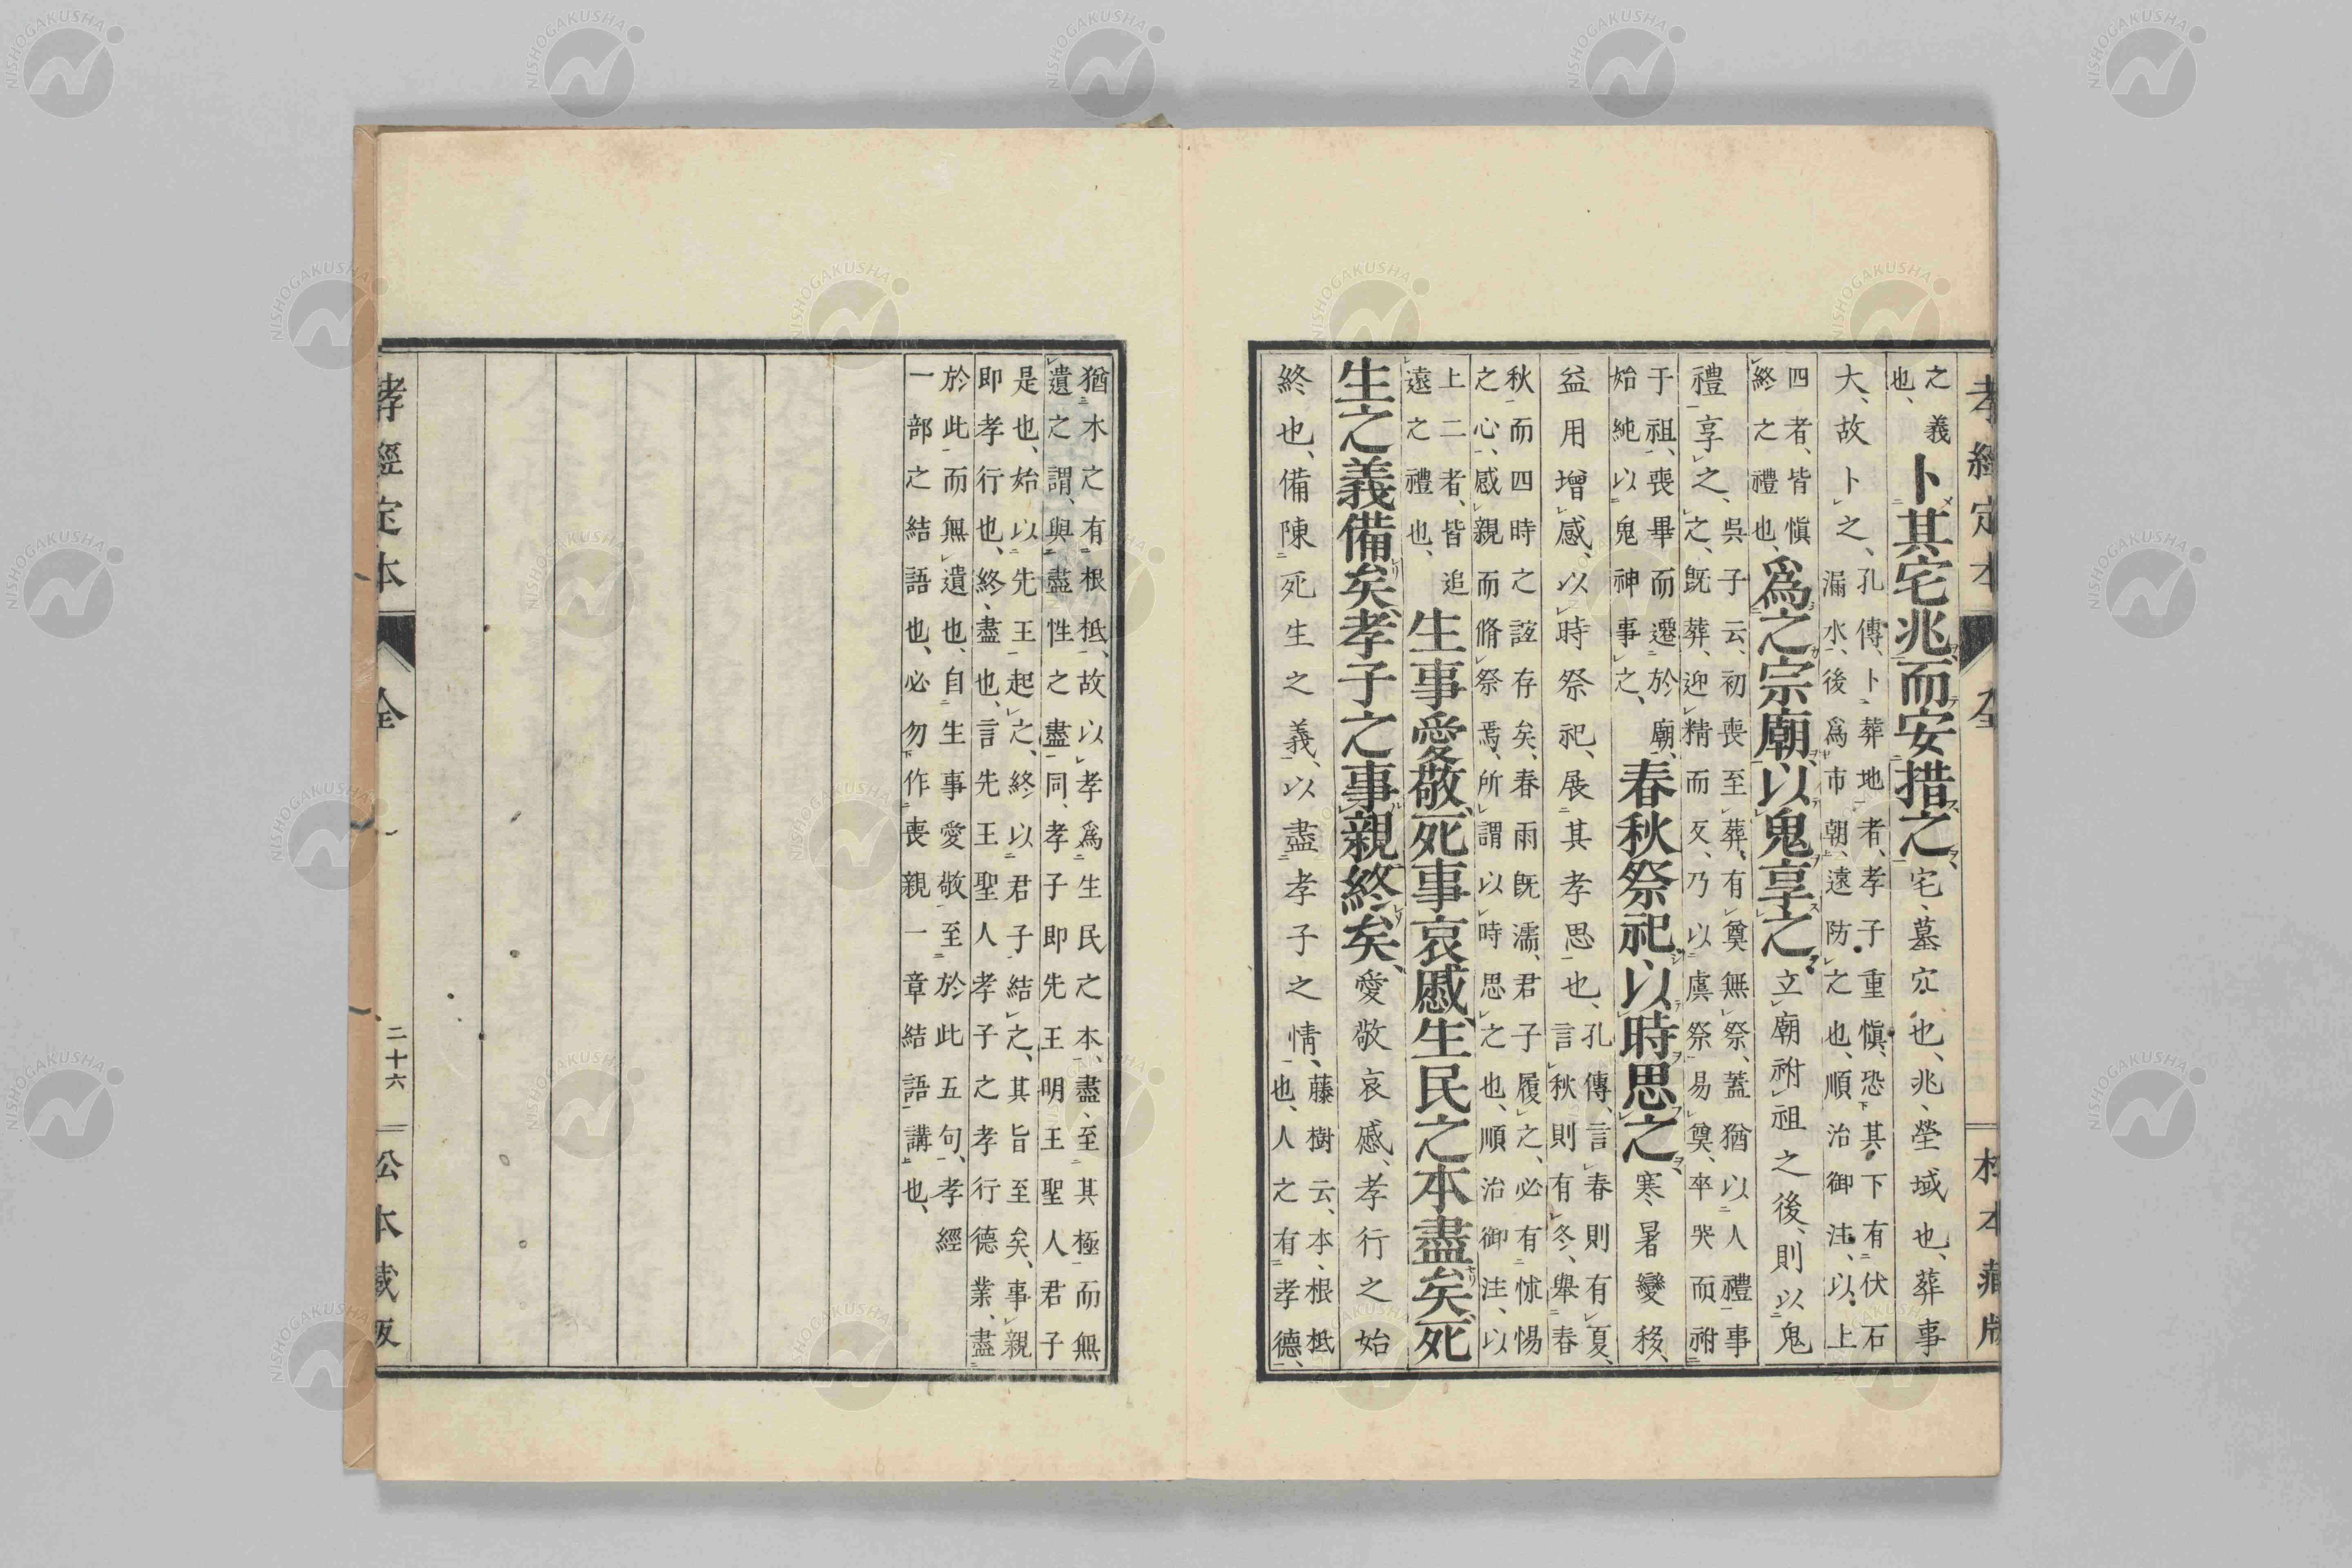 孝經定本 全 松本藏版
之義
也、
卜其宅兆、而安措之、宅、墓穴也、兆、塋域也、葬事
大、故卜之、孔傳、卜葬地者、孝子重愼、恐其下有伏石
漏水、後爲市朝、遠防之也、順治御注、以上
四者、皆愼
終之禮也、
爲之宗廟、以鬼享之、立廟祔祖之後、則以鬼
禮享之、吳子云、初喪至葬、有奠無祭、蓋猶以人禮事
之、既葬、迎精而反、乃以虞祭易奠、卒哭而祔
于祖、喪畢而遷於廟、
始純以鬼神事之、
春秋祭祀、以時思之、寒暑變移、
益用增感、以時祭祀、展其孝思也、孔傳、言春則有夏、
言秋則有冬、舉春
秋而四時之該存矣、春雨既濡、君子履之、必有怵惕
之心、感親而脩祭焉、所謂以時思之也、順治御注、以
上二者、皆追
遠之禮也、
生事愛敬、死事哀慼、生民之本盡矣、死
生之義備矣、孝子之事親終矣、愛敬哀慼、孝行之始
終也、備陳死生之義、以盡孝子之情、藤樹云、本、根柢
也、人之有孝德、
猶木之有根柢、故以孝爲生民之本、盡、至其極而無
遺之謂、與盡性之盡同、孝子即先王明王聖人君子
是也、始以先王起之、終以君子結之、其旨至矣、事親
即孝行也、終、盡也、言先王聖人孝子之孝行德業、盡
於此而無遺也、自生事愛敬至於此五句、孝經
一部之結語也、必勿作喪親一章結語講也、
孝經定本 全 二十六 松本藏版